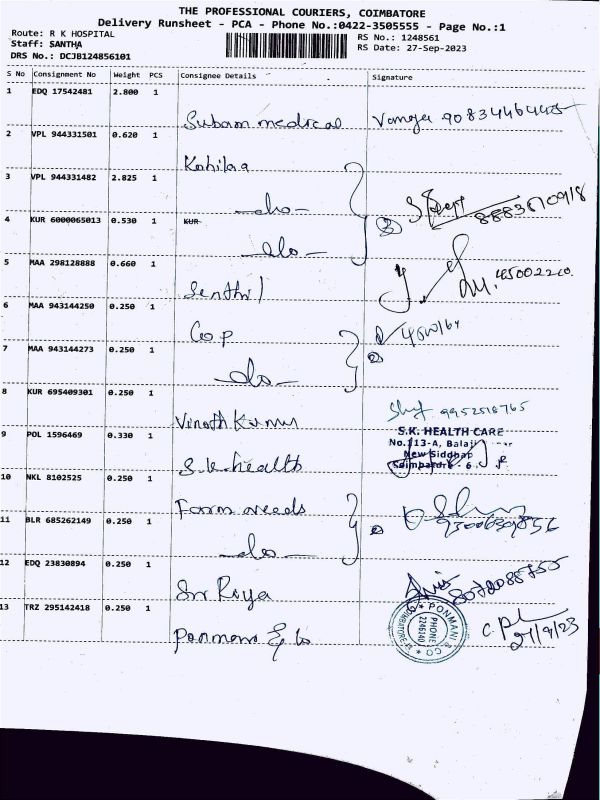 THE PROFESSIONAL COURIERS, COIMBATORE
Delivery Runsheet - PCA - Phone No.:0422-3505555 - Page No.:1
Route: R K HOSPITAL
Staff: SANTHA
DRS No.: DCJB124856101
RS No.: 1248561
RS Date: 27-Sep-2023
S No Consignment No Weight PCS Consignee Details Signature
1 EDQ 17542481 2.800 1
Subam medical
2 VPL 944331501 0.620 1
Kohilaa
3 VPL 944331482 2.825 1
-do-
4 KUR 6000065013 0.530 1 KUR
-do-
5 MAA 298128888 0.660 1
Senthil
6 MAA 943144250 0.250 1
Cop
7 MAA 943144273 0.250 1
-do-
8 KUR 695409301 0.250 1
Vinoth Kumar
9952518765
9 POL 1596469 0.330 1
S.K. HEALTH CARE
No.113-A, Balaji
New Siddhap
Coimbatore - 6
S.k.health
10 NKL 8102525 0.250 1
Farm needs
11 BLR 685262149 0.250 1
-do-
12 EDQ 23830894 0.250 1
Sri Raya
13 TRZ 295142418 0.250 1
PONMANI & CO
PHONE
2246140
27/9/23
Ponmani & Co